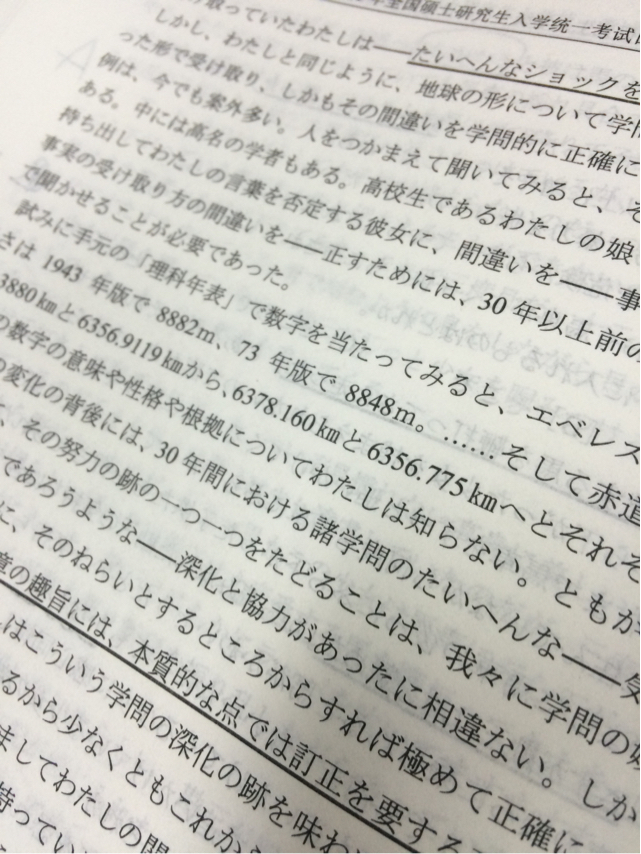 年全国硕士研究生入学统一考试日
け取っていたわたしは——たいへんなショックを
しかし、わたしと同じように、地球の形について学問
った形で受け取り、しかもその間違いを学問的に正確に
例は、今でも案外多い。人をつかまえて聞いてみると、そ
ある。中には高名の学者もある。高校生であるわたしの娘
持ち出してわたしの言葉を否定する彼女に、間違いを——事
事実の受け取り方の間違いを——正すためには、30年以上前の
で聞かせることが必要であった。
試みに手元の「理科年表」で数字を当たってみると、エベレス
さは 1943 年版で 8882m、73 年版で 8848m。……そして赤道
3880㎞と6356.9119㎞から、6378.160㎞と6356.775㎞へとそれぞ
の数字の意味や性格や根拠についてわたしは知らない。ともか
の変化の背後には、30年間における諸学問のたいへんな——気
、その努力の跡の一つ一つをたどることは、我々に学問の
であろうような——深化と協力があったに相違ない。しか
に、そのねらいとするところからすれば極めて正確に
章の趣旨には、本質的な点では訂正を要する
はこういう学問の深化の跡を味わ
るから少なくともこれから
ましてわたしの関
持ってい